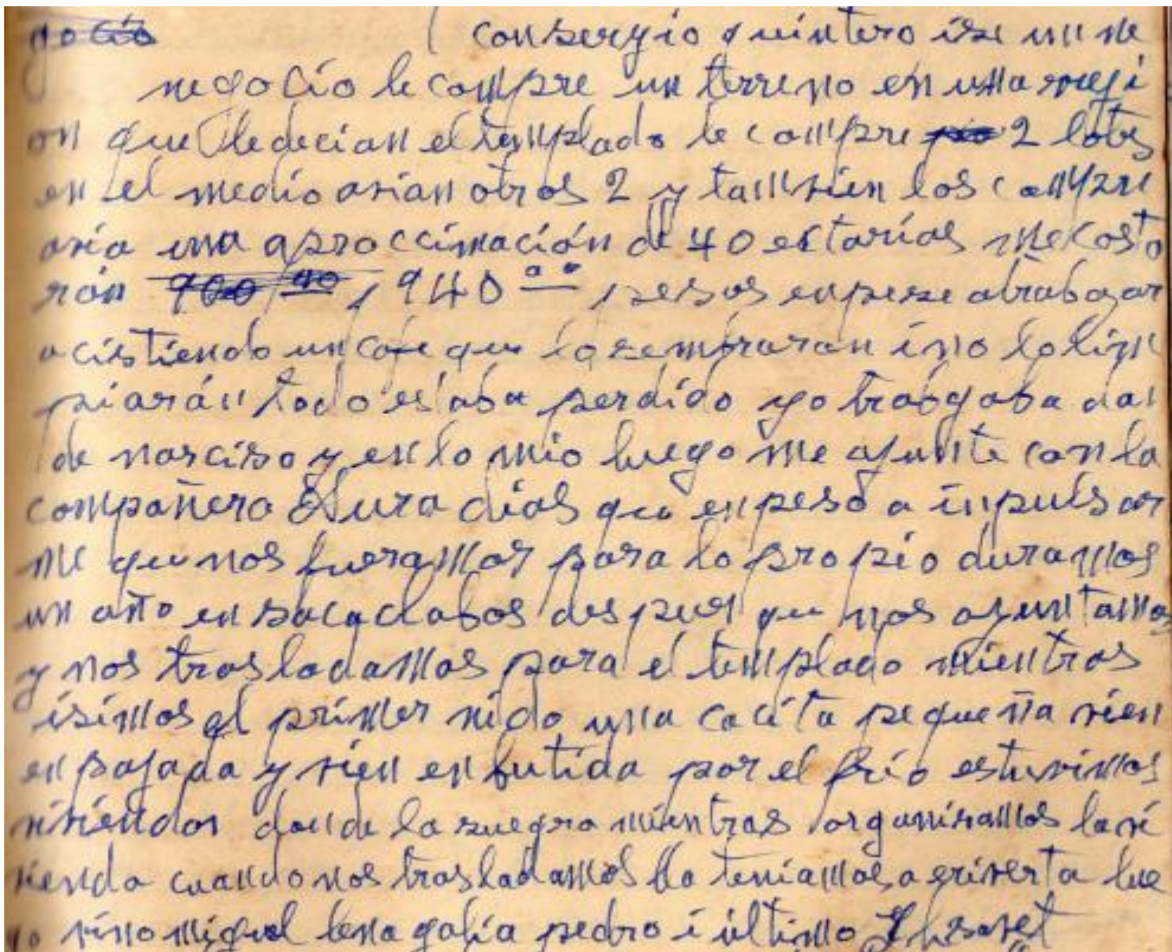 gocio ( con sergio quintero ise un ne
negocio le compre un terreno en una regi
on que le decian el templado le compre 2 lotes
en el medio avian otros 2 y tamvien los compre
avia una aproccimación de 40 ectarias me costa
rón 900 00 , 940 oo pesos enpese atrabajar
acistiendo un cafe que lo sembraran i no lo lim
piarán todo estaba perdido yo trabajaba don
de narciso y en lo mio luego me ajunte con la
compañera Elvira dias que enpesó a inpulsar
me que nos fueramos para lo propio duramos
un año en sacaclavos des pues que nos ajuntamos
y nos trasladamos para el templado mientras
isimos el primer nido una cacita pequeña vien
enpajada y vien enbutida por el frio estuvimos
viviendo donde la suegra mientras organisamos la vi
vienda cuando nos trasladamos lla teniamos a eriverta lue
go vino miguel pedro i ultimo